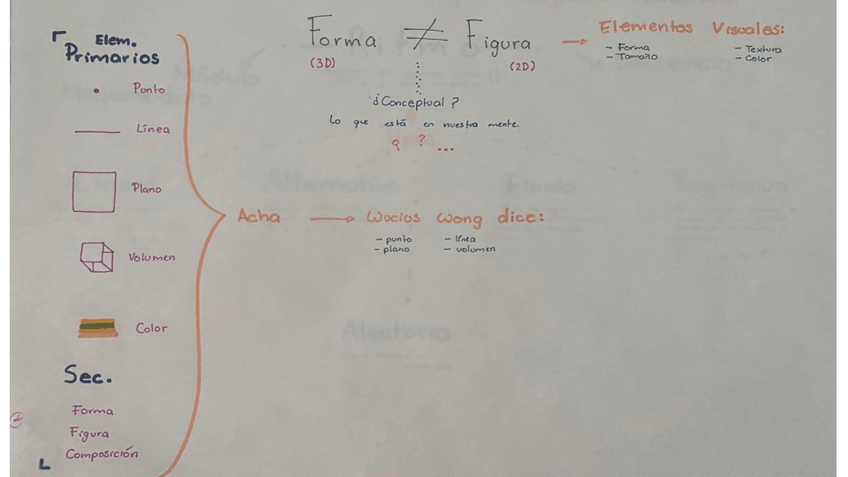 Elem.
Primarios
Punto
Línea
Plano
Volumen
Color
Sec.
Forma
Figura
Composición
Forma ≠ Figura → Elementos Visuales:
(3D) (2D)
- Forma - Textura
- Tamaño - Color
¿Conceptual?
Lo que está en nuestra mente.
? ...
Acha → Wocios Wong dice:
- punto - línea
- plano - volumen
Alternativo Fluido Progresivo
Aleatorio